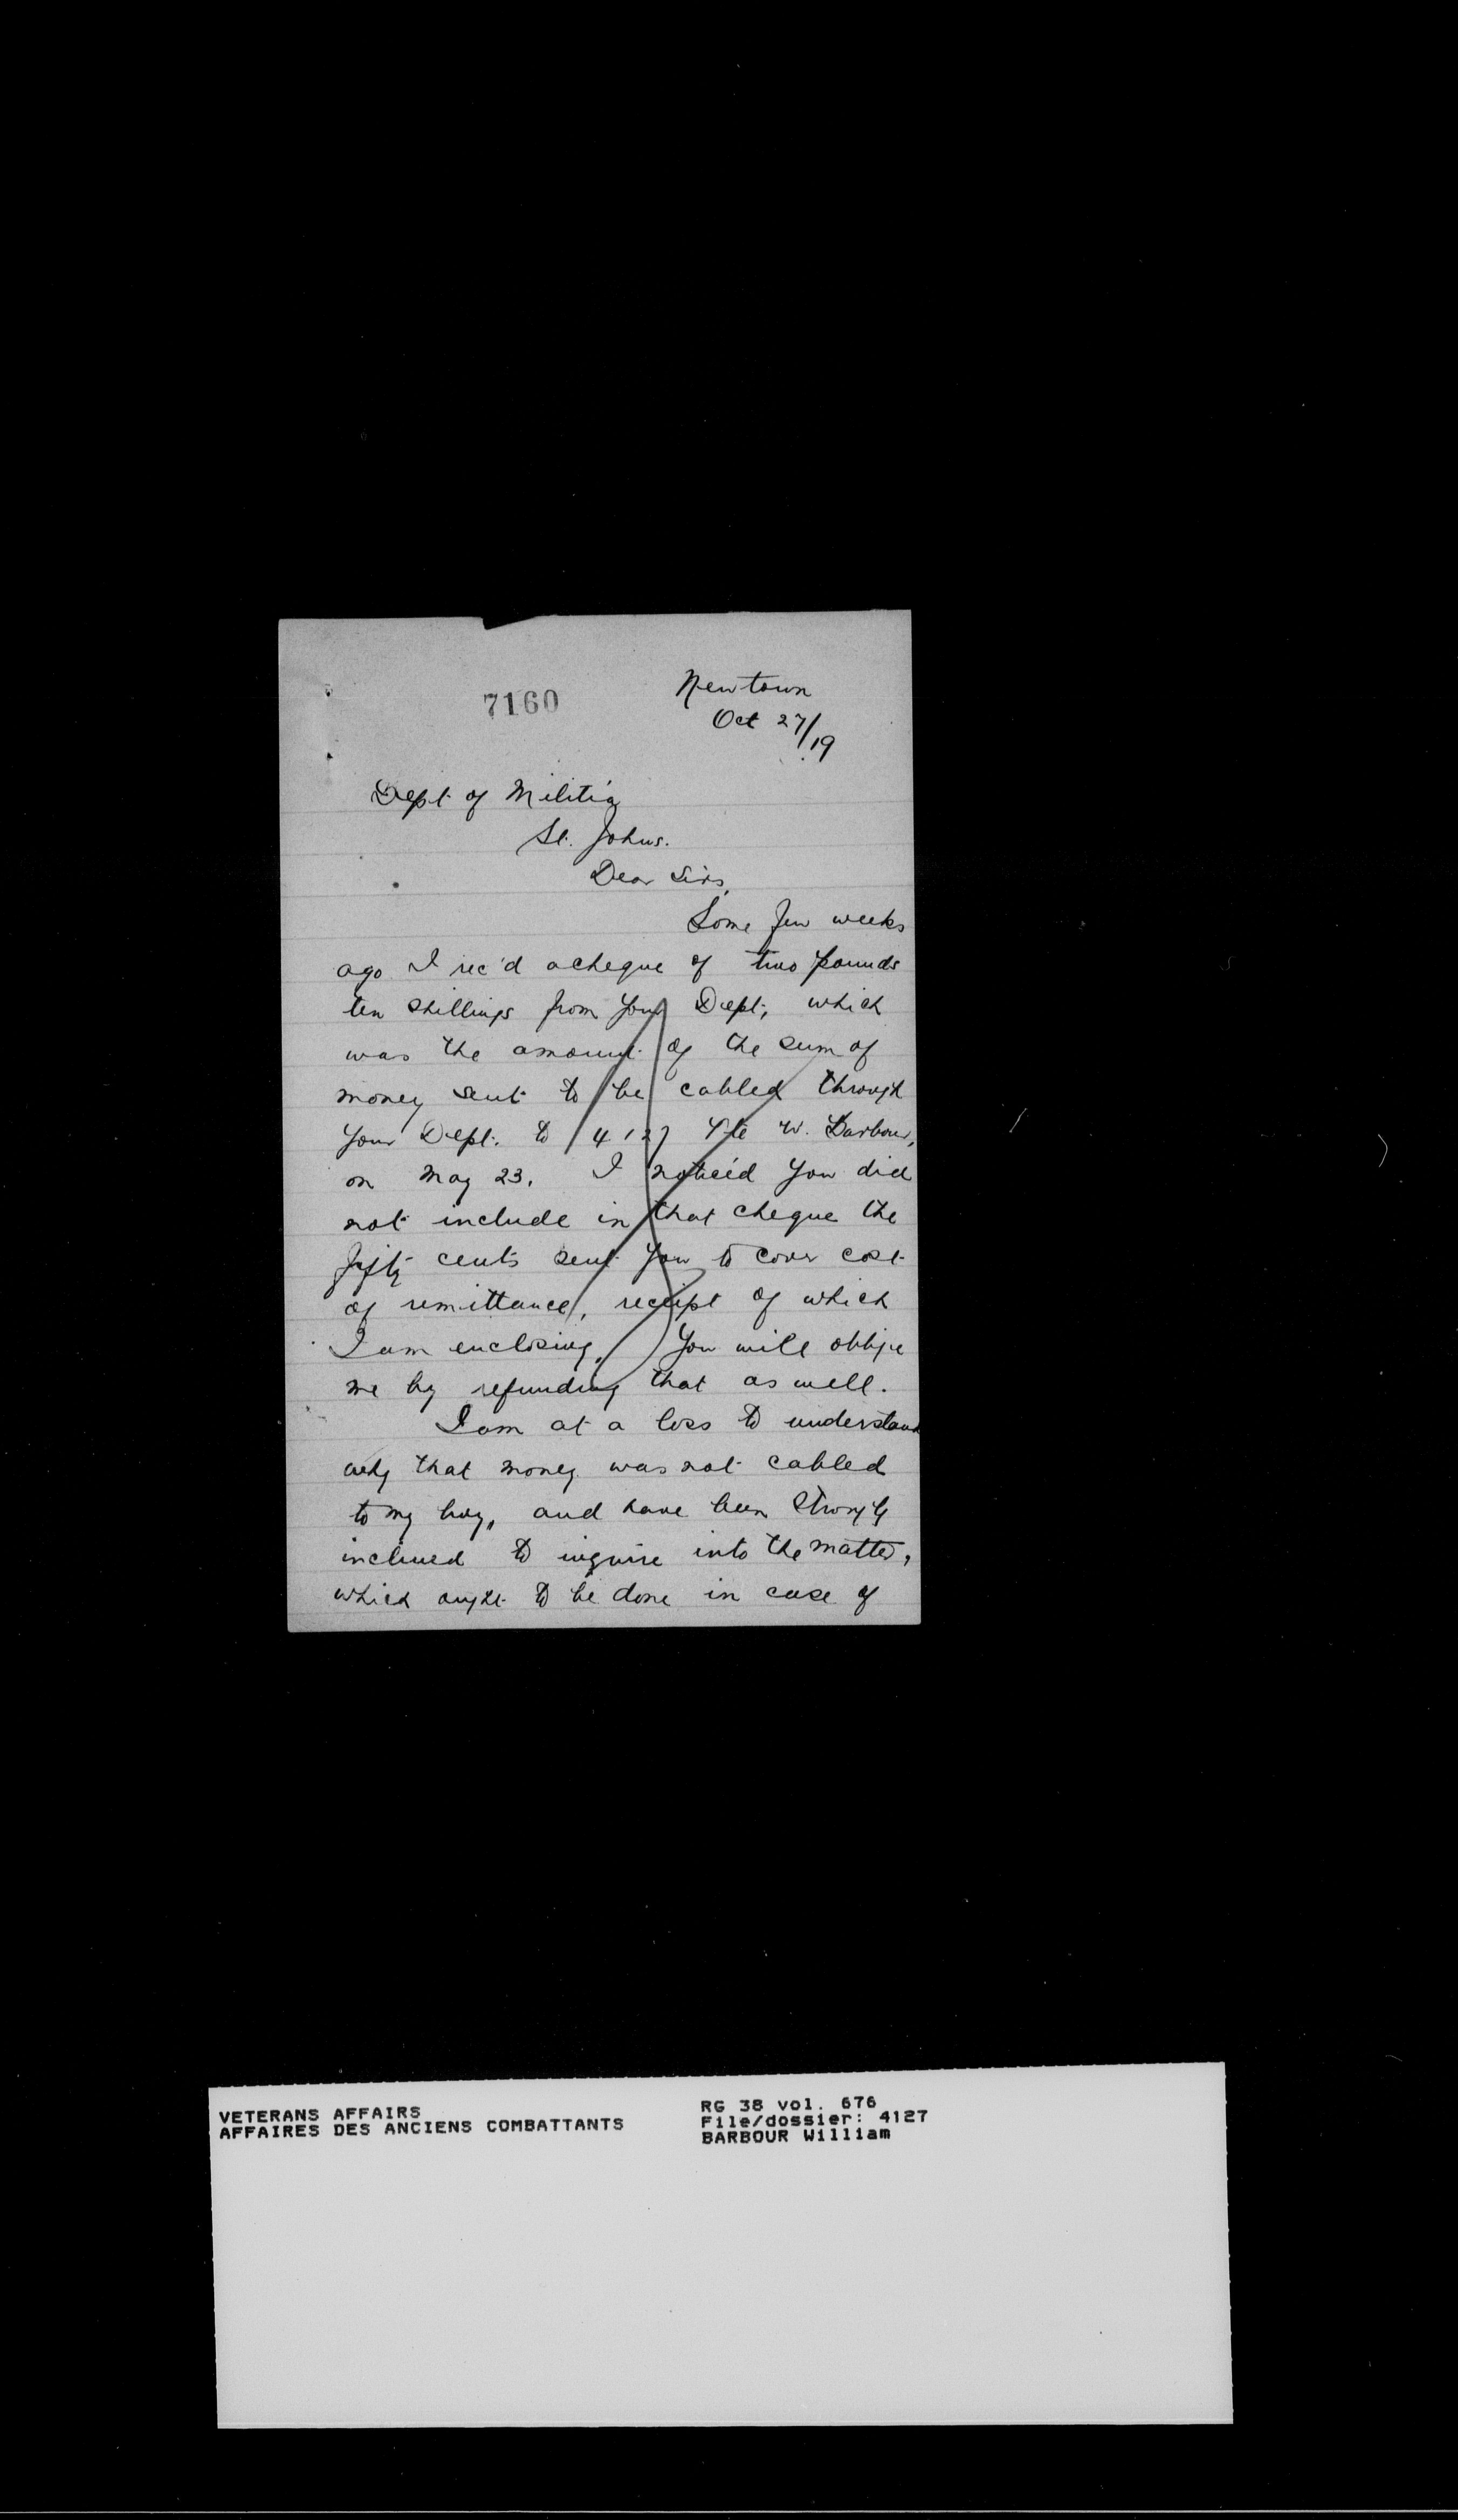 7160
Newtown
Oct 27/19
Dept. of Militia
St. Johns.
Dear Sirs,
Some few weeks
ago I rec'd a cheque of two pounds
ten shillings from your Dept; which
was the amount of the sum of
money sent to be cabled through
your Dept. to 4127 Pte W. Barbour,
on May 23. I noticed you did
not include in that cheque the
fifty cents sent you to cover cost
of remittance, receipt of which
I am enclosing. You will oblige
me by refunding that as well.
I am at a loss to understand
why that money was not cabled
to my boy, and have been strongly
inclined to inquire into the matter,
which ought to be done in case of
VETERANS AFFAIRS
AFFAIRES DES ANCIENS COMBATTANTS
RG 38 vol. 676
File/dossier: 4127
BARBOUR William